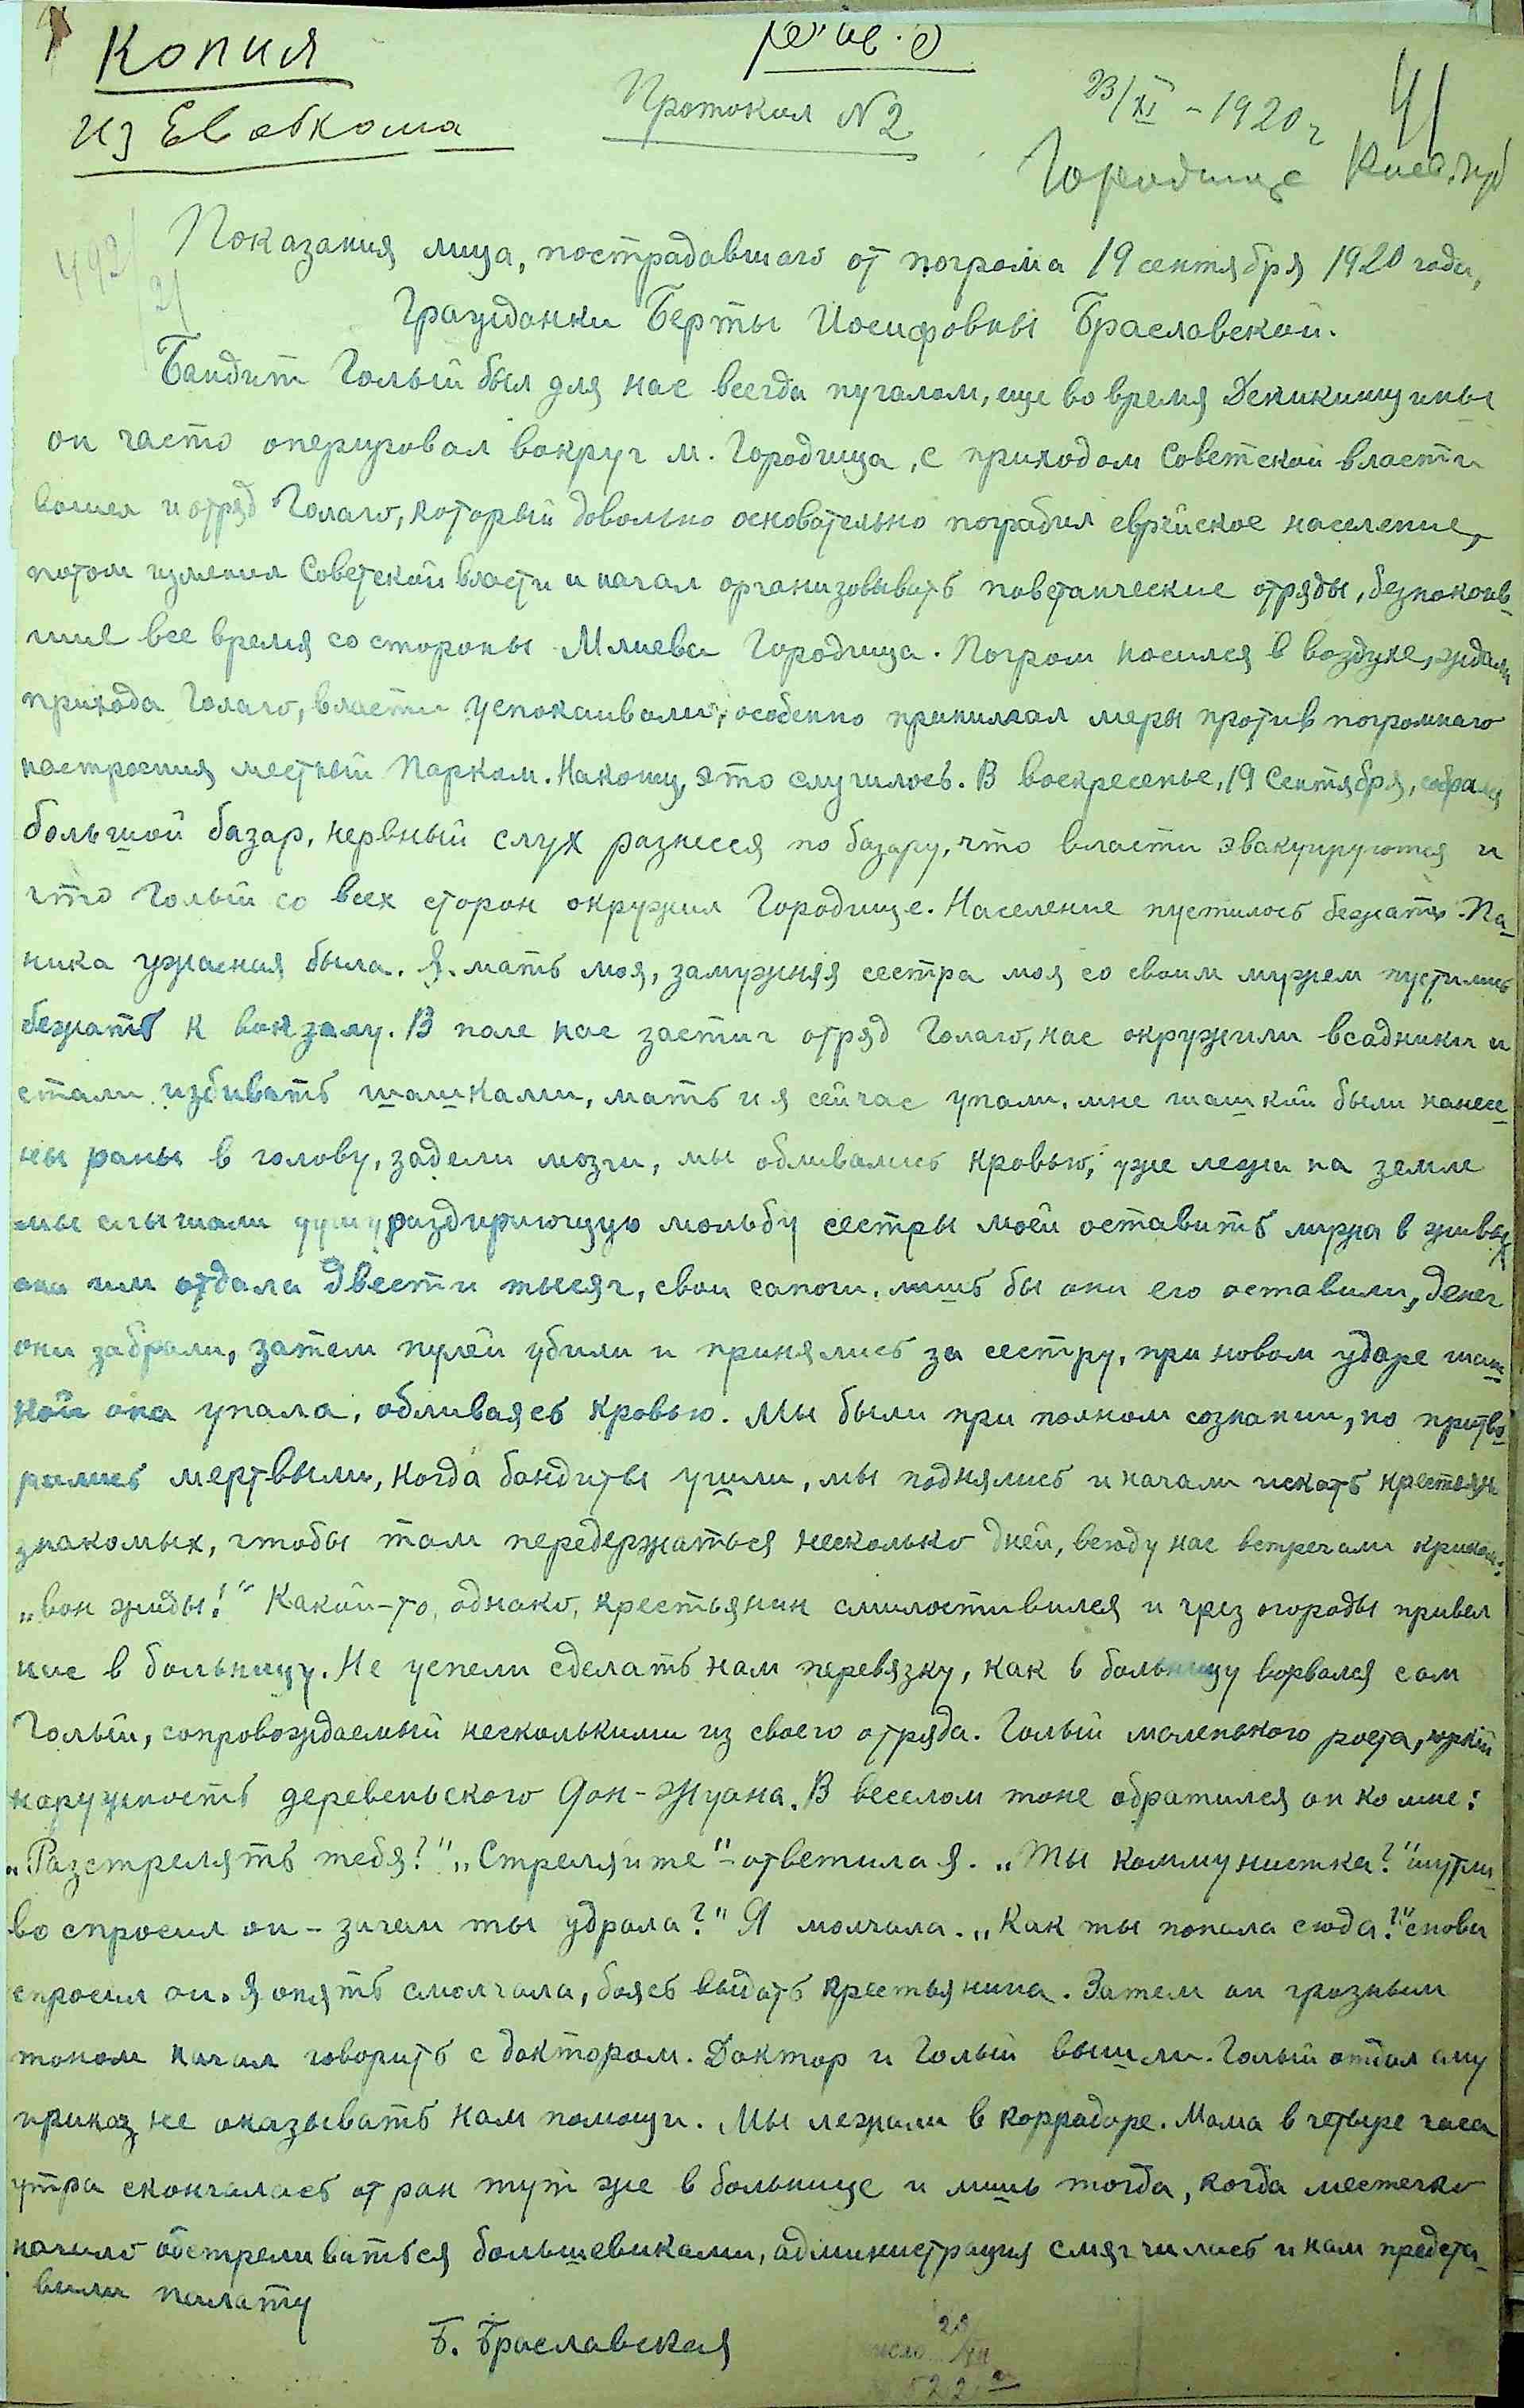 Копия
Из Евобкома
Протокол N2
23/XI - 1920 г
41
Городище Киев. губ
Показания лица, пострадавшаго от погрома 19 сентября 1920 года,
Гражданки Берты Иосифовны Браславской.
Бандит Голый был для нас всегда пугалом, еще во время Деникинщины
он часто оперировал вокруг м. Городища, с приходом Советской власти
вошел и отряд Голаго, который довольно основательно пограбил еврейское население,
потом изменил Советской власти и начал организовывать повстанческие отряды, безпокоив-
шие все время со стороны Млиева Городища. Погром носился в воздухе, ждали
прихода Голаго, власти успокаивали, особенно принимал меры против погромнаго
настроения местный Парком. Наконец, это случилось. В воскресенье, 19 Сентября, собрался
большой базар, нервный слух разнесся по базару, что власти эвакуируются и
что Голый со всех сторон окружил Городище. Население пустилось бежать. Па-
ника ужасная была. Я, мать моя, замужняя сестра моя со своим мужем пустились
бежать к вокзалу. В поле нас застиг отряд Голаго, нас окружили всадники и
стали избивать шашками, мать и я сейчас упали, мне шашкой были нанесе-
ны раны в голову, задели мозги, мы обливались кровью, уже лежа на земле
мы слышали душураздирающую мольбу сестры моей оставить мужа в живых
она им отдала двести тысяч, свои сапоги, лишь бы они его оставили, денег
они забрали, затем пулей убили и принялись за сестру, при новом ударе шаш-
кой она упала, обливаясь кровью. Мы были при полном сознании, но притво-
рились мертвыми, когда бандиты ушли, мы поднялись и начали искать крестьян
знакомых, чтобы там передержаться несколько дней, всюду нас встречали криком:
„вон жиды!“ Какой-то, однако, крестьянин смилостивился и чрез огороды привел
нас в больницу. Не успели сделать нам перевязку, как в больницу ворвался сам
Голый, сопровождаемый несколькими из своего отряда. Голый маленького роста, юркий
наружность деревенского Дон-Жуана. В веселом тоне обратился он ко мне:
„Разстрелять тебя?" „Стреляйте" - ответила я. „Ты коммунистка?" шутли-
во спросил он - зачем ты удрала?" Я молчала. „Как ты попала сюда?" снова
спросил он. Я опять смолчала, боясь выдать крестьянина. Затем он грозным
тоном начал говорить с доктором. Доктор и Голый вышли. Голый отдал ему
приказ не оказывать нам помощи. Мы лежали в коррадоре. Мама в четыре часа
утра скончалась от ран тут же в больнице и лишь тогда, когда местечко
начало обстреливаться большевиками, администрация смягчилась и нам предста-
вили палату
Б. Браславская